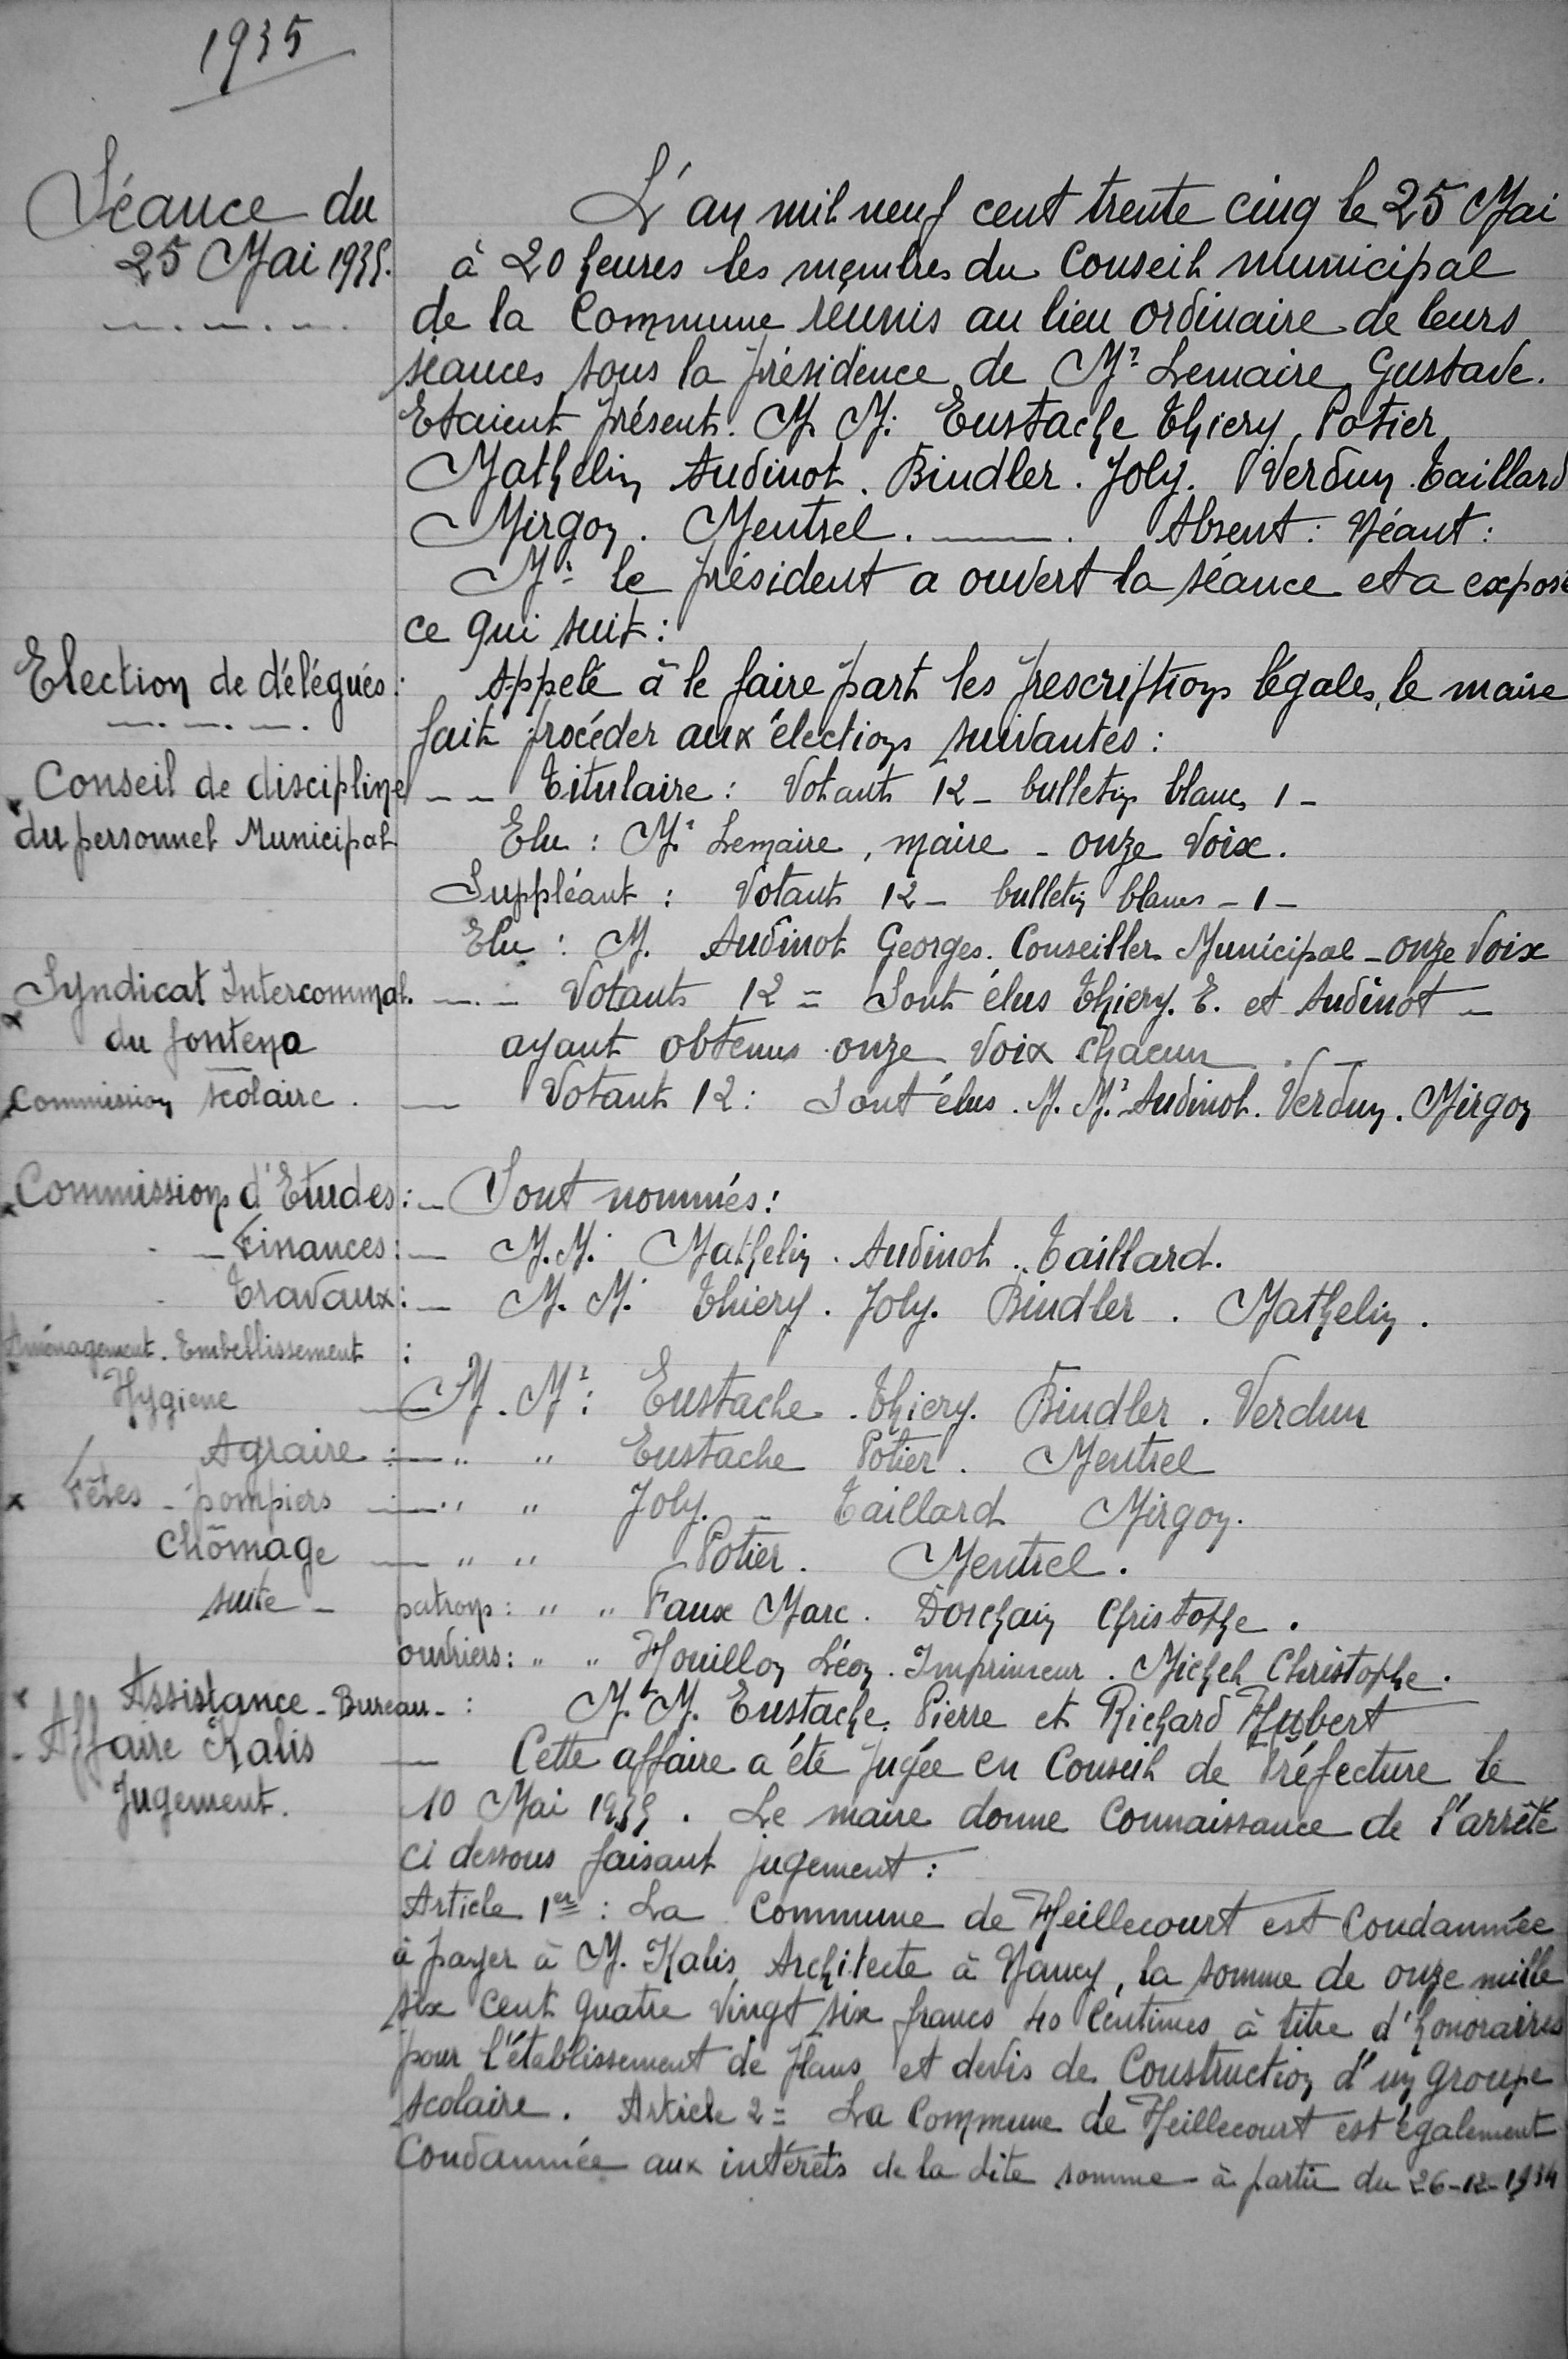 1935
Séance du
25 Mai 1935.
L'an mil neuf cent trente cinq le 25 Mai
à 20 heures les membres du Conseil municipal
de la Commune réunis au lieu ordinaire de leurs
séances sous la présidence de Mr Lemaire Gustave.
Etaient présents. M. M. Eustache Thiery, Potier,
Mathelin Audinot. Bindler. Joly. Verdun. Taillard
Mirgon. Mentrel. Absent : Néant :
Mr le président a ouvert la séance et a exposé
ce qui suit :
Election de délégués :
Appelé à le faire part les prescriptions légales, le maire
fait procéder aux élections suivantes :
Conseil de discipline
du personnel Municipal
-- Titulaire : Votants 12 - bulletin blanc 1 -
Elu : Mr Lemaire, maire - onze Voix.
Suppléant : Votants 12 - bulletin blancs - 1 -
Elu : M. Audinot Georges. Conseiller Municipal - onze Voix
Syndicat Intercommal.
du fonteno
-- Votants 12 = Sont élus Thiery. E. et Audinot -
ayant obtenus onze Voix chacun
Commission scolaire.
- Votant 12 : Sont élus. M. Mr Audinot. Verdun. Mirgon
Commissions d'Etudes : - Sont nommés :
- Finances : - M. M. Mathelin. Audinot. Taillard.
Travaux : - M. M. Thiery. Joly. Bindler. Mathelin.
Aménagement. Embellissement :
Hygiene - M. Mr : Eustache. Thiery. Bindler. Verdun
Agraire : - " " Eustache Potier. Mentrel
x Fêtes - pompiers - " " Joly. - Taillard Mirgon.
Chômage - " " Potier. Mentrel.
suite - patrons : " " Faux Marc. Dorchain Christophe.
ouvriers : " " Houillon Léon. Imprimeur. Michel Christophe.
Assistance - Bureau - : M. M. Eustache Pierre et Richard Hubert
Affaire Kalis
Jugement.
- Cette affaire a été Jugée en Conseil de Préfecture le
10 Mai 1935. Le maire donne Connaissance de l'arrêté
ci dessous faisant jugement :
Article 1er : La Commune de Heillecourt est Condamnée
à payer à M. Kalis, Architecte à Nancy, la somme de onze mille
six cent quatre vingt six francs 40 Centimes à titre d'honoraires
pour l'établissement de plans et devis de Construction d'un groupe
scolaire. Article 2 = La Commune de Heillecourt est également
Condamnée aux intérêts de la dite somme - à partir du 26-12-1934